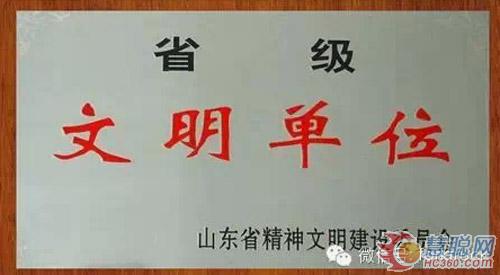 省级
文明单位
山东省精神文明建设委员会
慧聪网
HC360.com